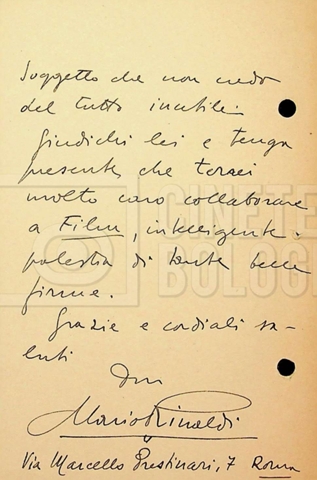 Soggetto che non credo
del tutto inutile.
Giudichi lei e tenga
presente, che terrei
molto caro collaborare
a Film, intelligente
palestra di tante belle
firme.
Grazie e cordiali sa-
luti
Mario Rinaldi
Via Marcello Prestinari, 7 Roma
CINETE
BOLOG